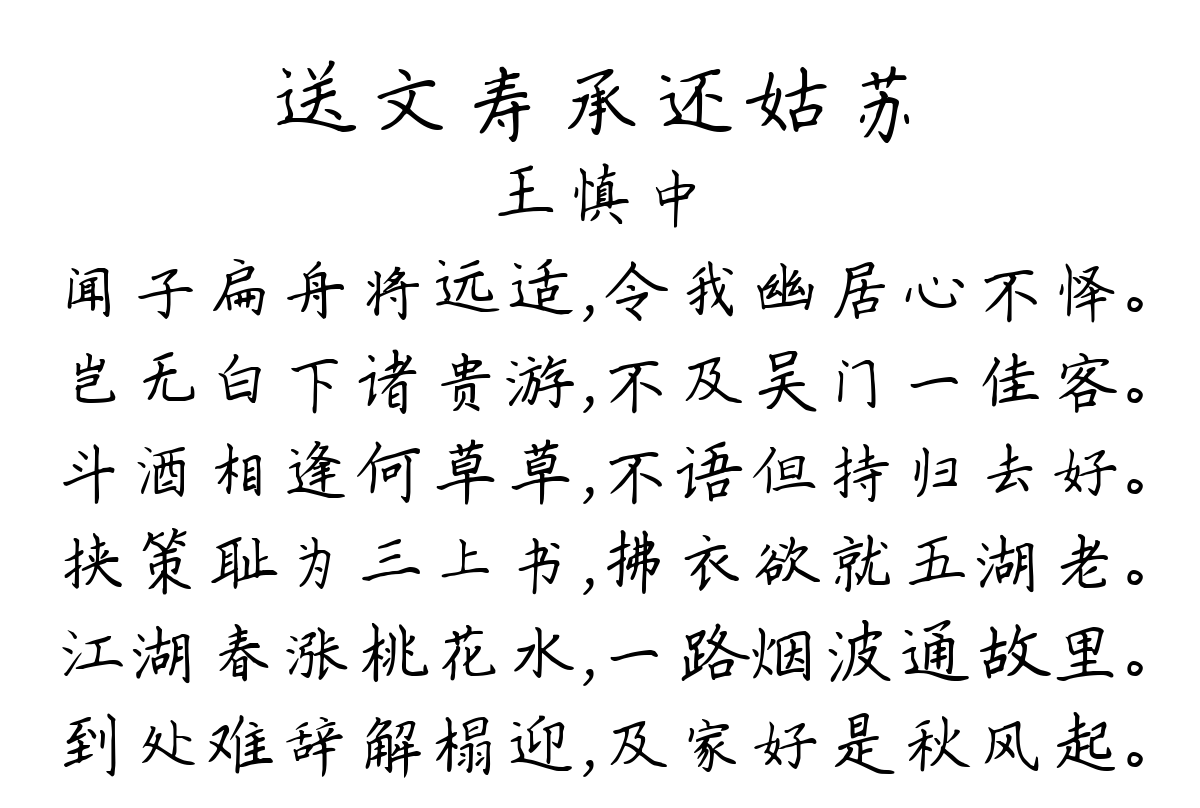 送文寿承还姑苏
王慎中
闻子扁舟将远适,令我幽居心不怿。
岂无白下诸贵游,不及吴门一佳客。
斗酒相逢何草草,不语但持归去好。
挟策耻为三上书,拂衣欲就五湖老。
江湖春涨桃花水,一路烟波通故里。
到处难辞解榻迎,及家好是秋风起。